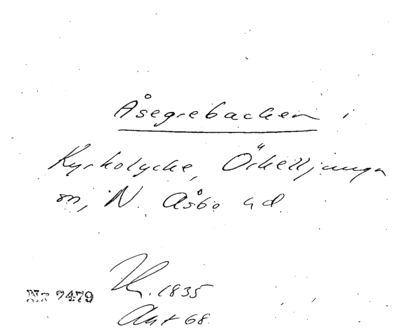 Åsegrebacken i
Kyrkolycke, Örkelljunga
sn, N. Åsbo hd
Nr 7479
1835
Akt 68